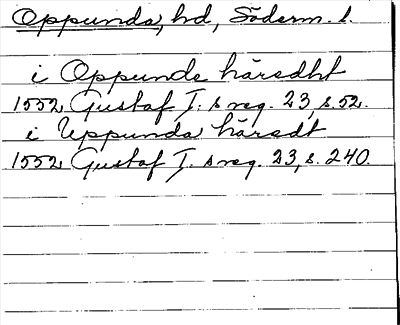 Oppunda, hd, Söderm. l.
i Oppunde häredht
1552 Gustaf I: s reg. 23, s. 52.
i Uppunda häredt
1552 Gustaf I. s reg. 23, s. 240.